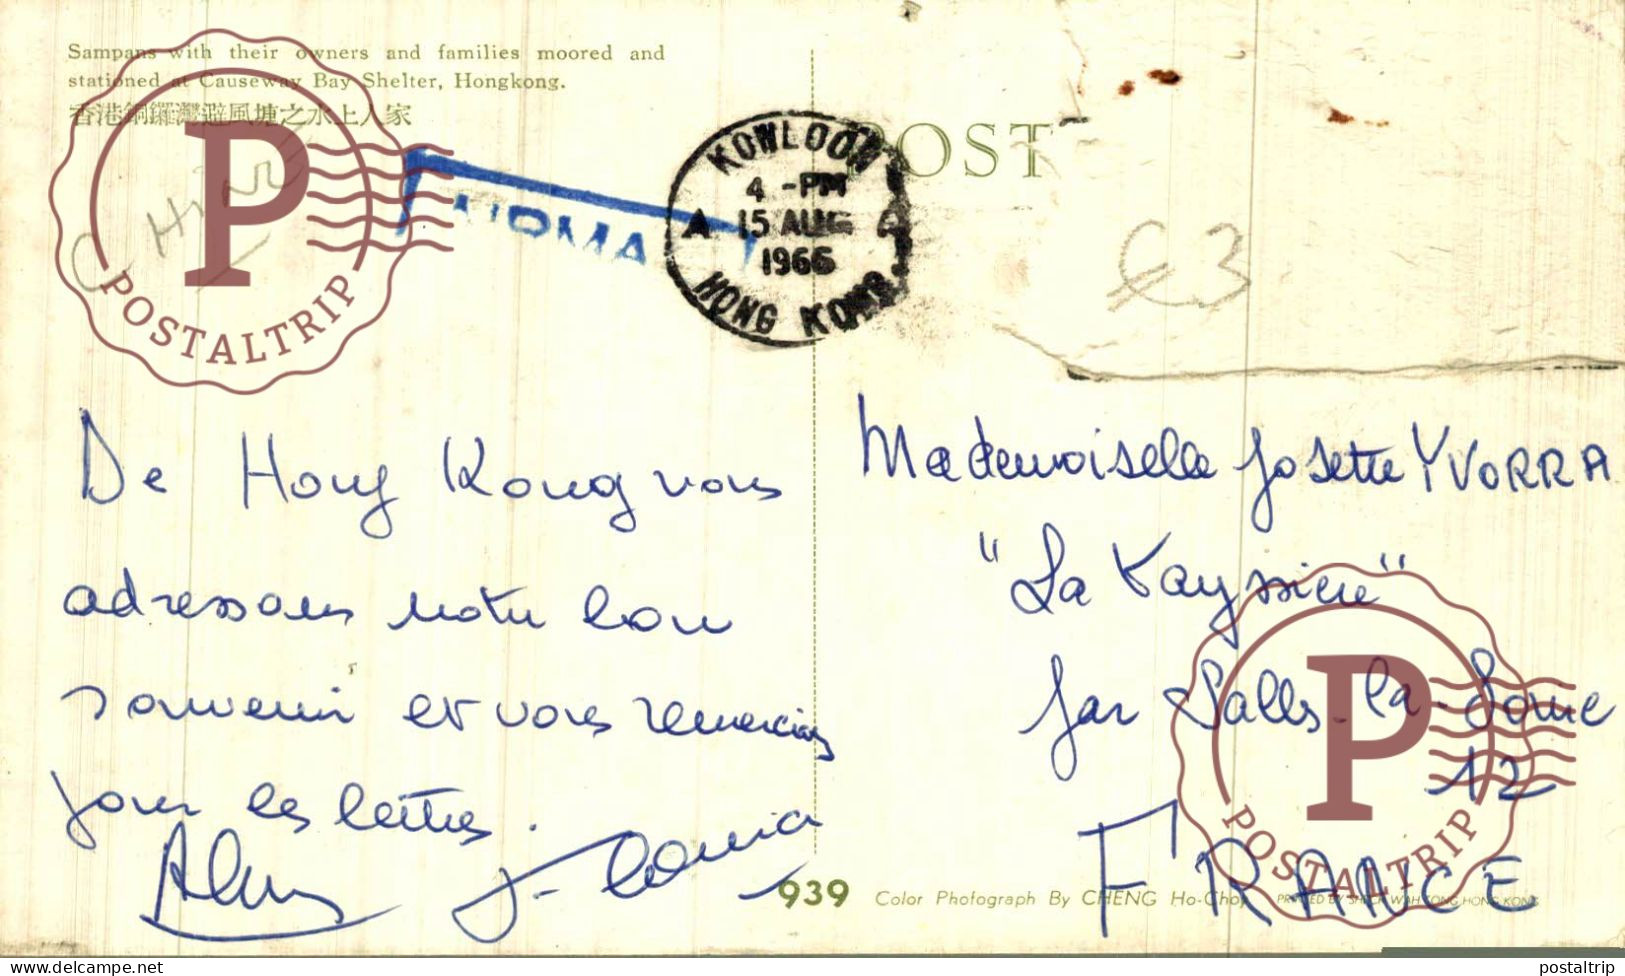 Sampans with their owners and families moored and
stationed at Causeway Bay Shelter, Hongkong.
香港銅鑼灣避風塘之水上人家
POST
KOWLOON
4 -PM
A 15 AUG A
1966
HONG KONG
€3
De Hong Kong vous
adressons notre bon
souvenir et vous remercions
pour les lettres.
939
Mademoiselle Josette YVORRA
"La Vayssière"
par Salles-la-Source
12
FRANCE
Color Photograph By CHENG Ho-Choy
PRINTED BY SHUCK WAH TONG HONG KONG
P
POSTALTRIP
P
POSTALTRIP
delcampe.net
postaltrip